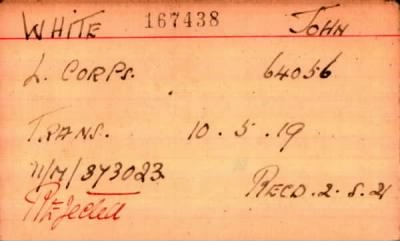 WHITE 167438 JOHN
L. CORPS. 64056
TRANS. 10.5.19
11/M/373023
Rejected RECD. 2.8.21